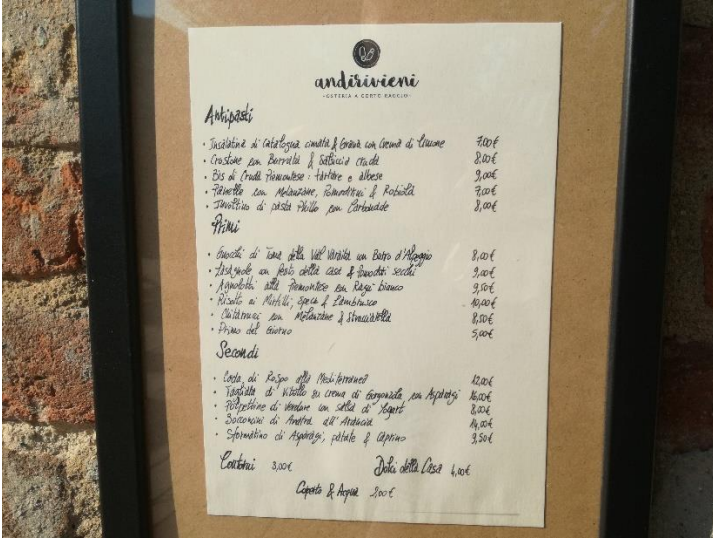 andirivieni
-OSTERIA A CORTO RAGGIO-
Antipasti
• Insalatina di Catalogna cimata & Grana con Crema di Limone 7,00€
• Crostone con Burrata & Salsiccia cruda 8,00€
• Bis di Cruda Piemontese: tartare e albese 9,00€
• Panella con Melanzane, Pomodorini & Robiola 7,00€
• Involtino di pasta Phillo con Carbonade 8,00€
Primi
• Gnocchi di Toma della Val Varaita con Burro d'Alpeggio 8,00€
• Lasagnole con Pesto della casa & Pomodori secchi 9,00€
• Agnolotti alla Piemontese con Ragù bianco 9,50€
• Risotto ai Mirtilli, Speck & Lambrusco 10,00€
• Chitarrucci con Melanzane & Stracciatella 8,50€
• Primo del Giorno 5,00€
Secondi
• Coda di Rospo alla Mediterranea 12,00€
• Tagliata di Vitello su crema di Gorgonzola con Asparagi 16,00€
• Polpettine di Verdure con salsa di Yogurt 8,00€
• Bocconcini di Anatra all'Arancia 14,00€
• Sformatino di Asparagi, patate & Caprino 9,50€
Contorni 3,00€ Dolci della Casa 4,00€
Coperto & Acqua 2,00€